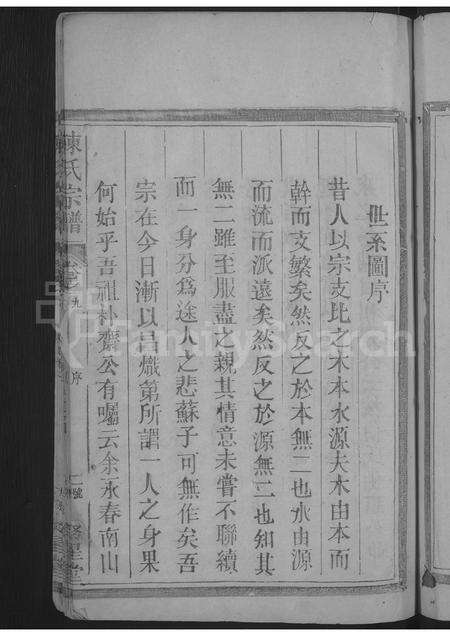 世系圖序
昔人以宗支比之木本水源夫木由本而
幹而支繁矣然反之於本無二也水由源
而流而派遠矣然反之於源無二也知其
無二雖至服盡之親其情意未嘗不聯續
而一身分為途人之悲蘇子可無作矣吾
宗在今日漸以昌熾第所謂一人之身果
何始乎吾祖朴齋公有囑云余永春南山
陳氏宗譜
卷九
序
堂
FamilySearch